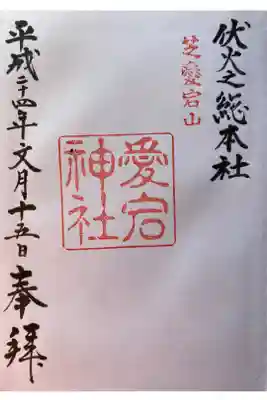 伏火之総本社
芝愛宕山
愛宕
神社
平成二十四年文月十五日
奉拝